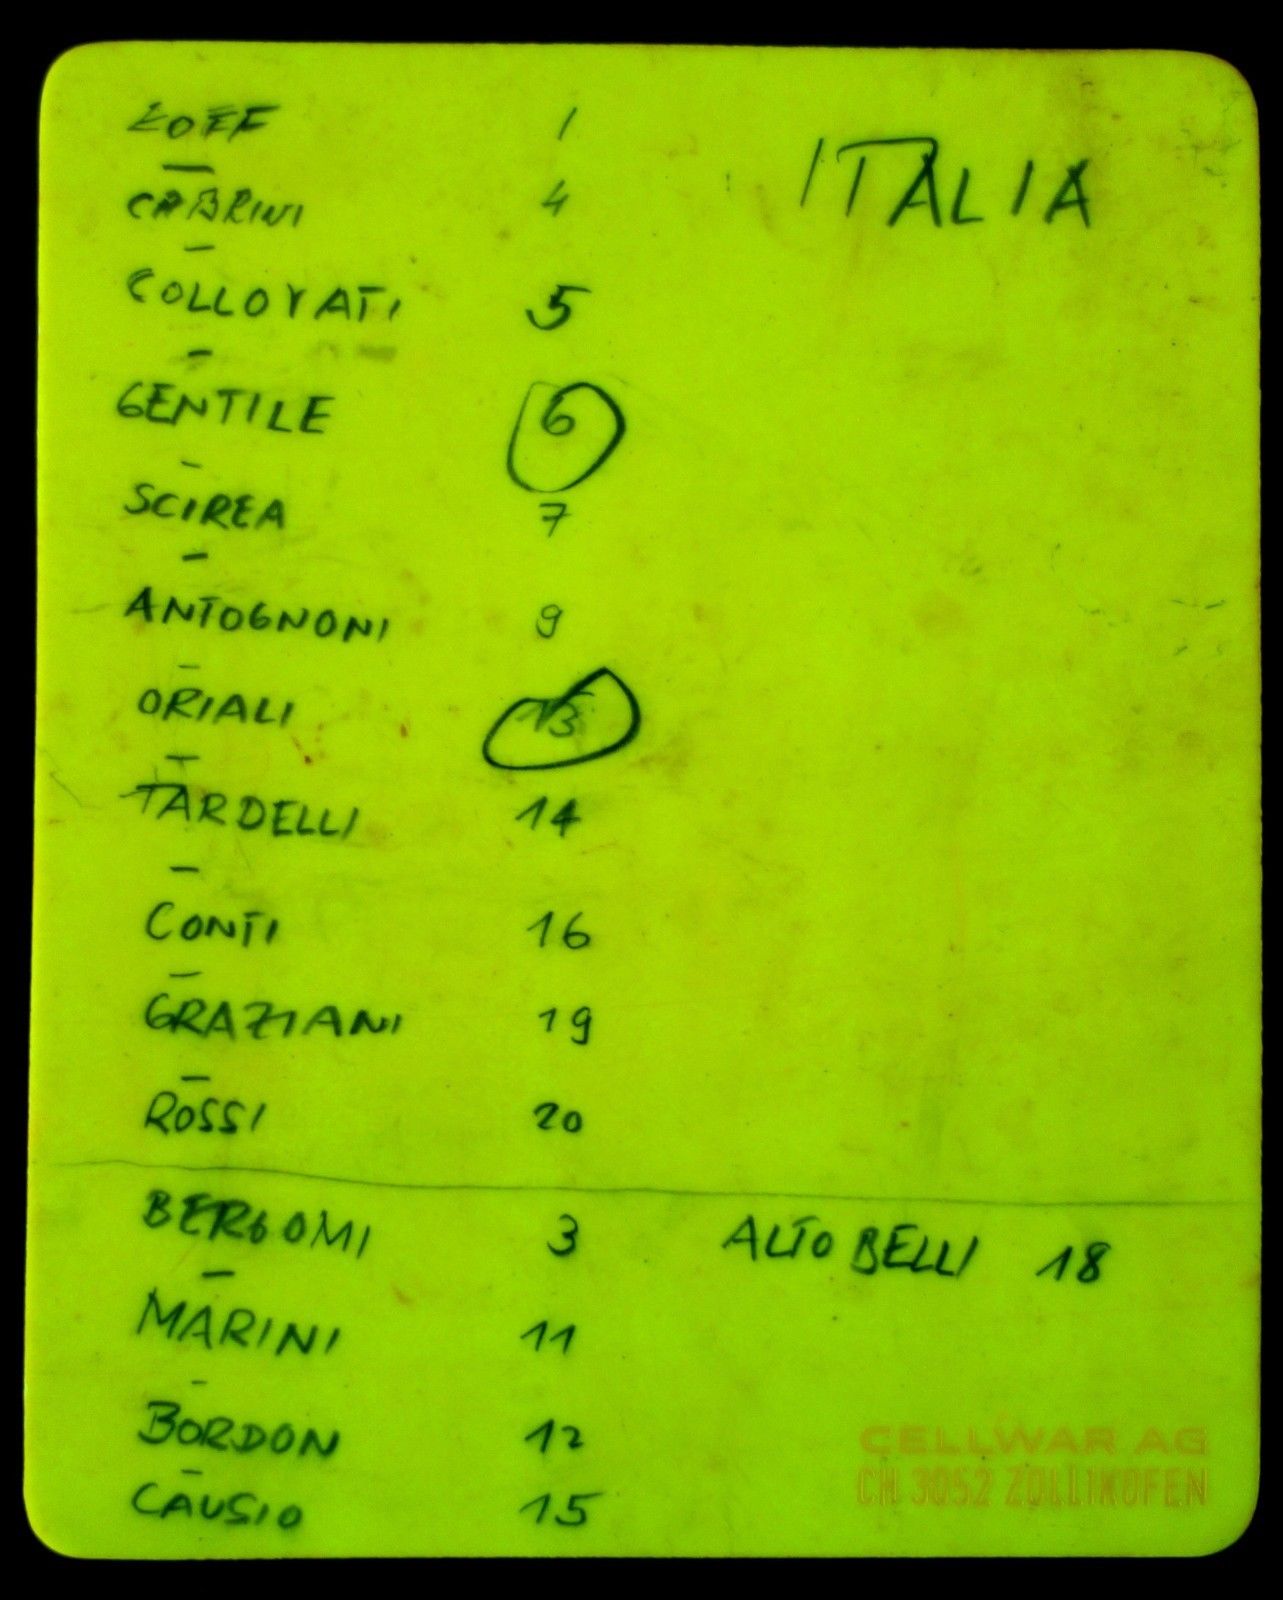 ZOFF 1
ITALIA
CABRINI 4
COLLOVATI 5
GENTILE 6
SCIREA 7
ANTOGNONI 9
ORIALI 13
TARDELLI 14
CONTI 16
GRAZIANI 19
ROSSI 20
BERGOMI 3 ALTOBELLI 18
MARINI 11
BORDON 12
CAUSIO 15
CELLWAR AG
CH 3052 ZOLLIKOFEN